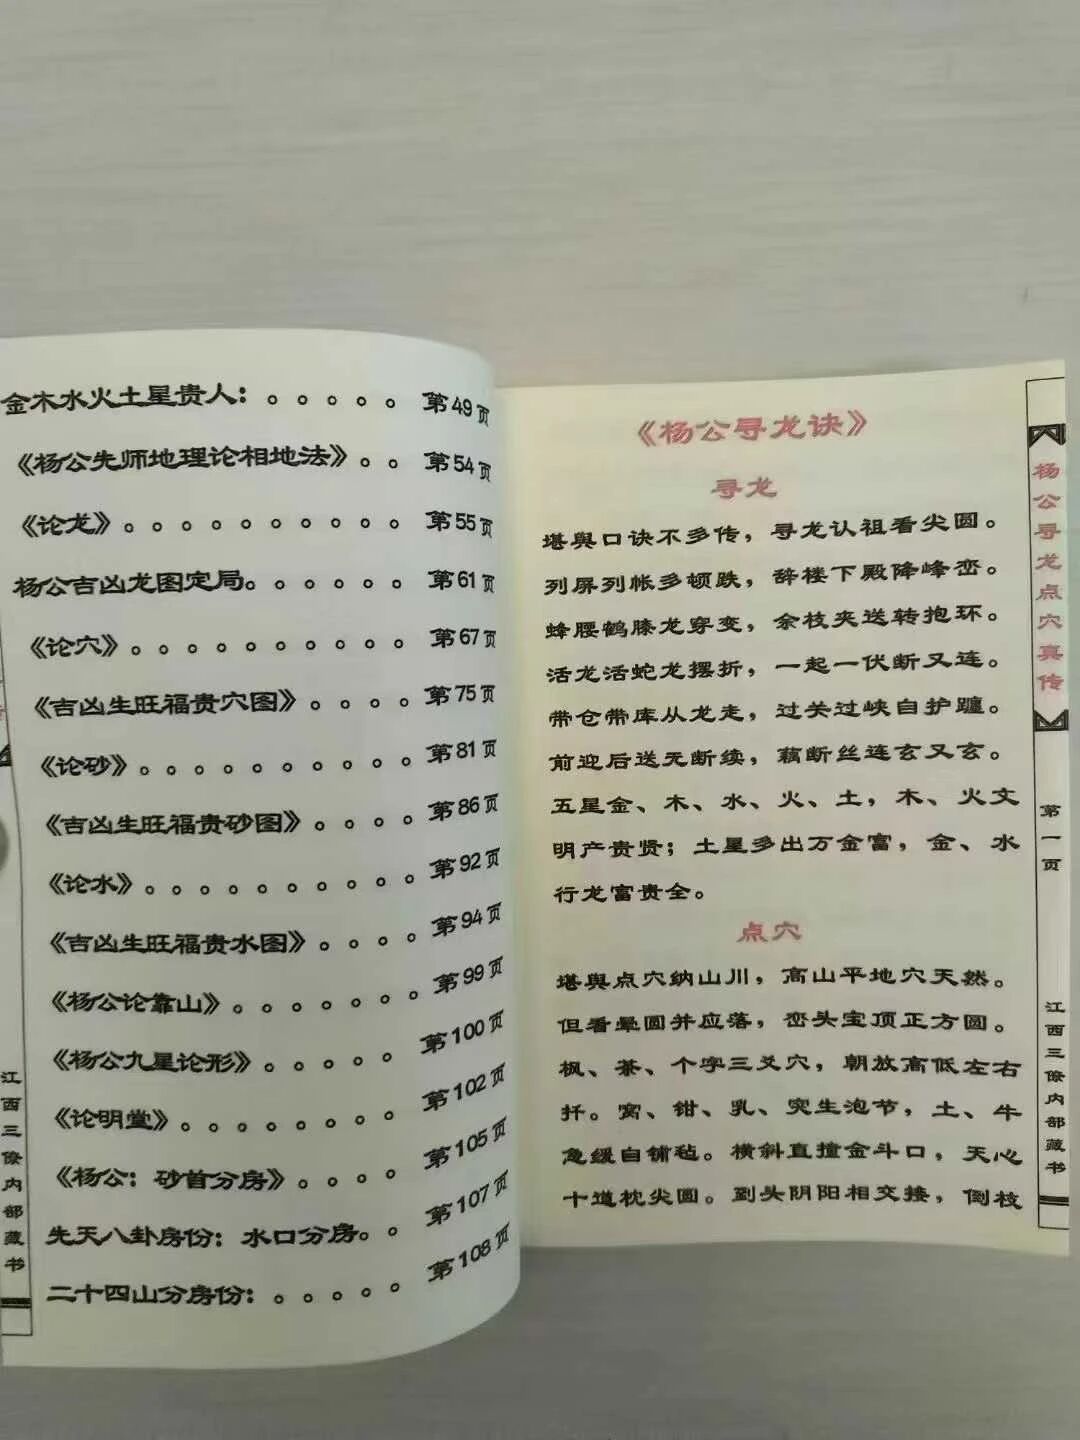 金木水火土星贵人：。。。。。第49页
《杨公先师地理论相地法》。。第54页
《论龙》。。。。。。。。。。第55页
杨公吉凶龙图定局。。。。。。第61页
《论穴》。。。。。。。。。。第67页
《吉凶生旺福贵穴图》。。。。第75页
《论砂》。。。。。。。。。。第81页
《吉凶生旺福贵砂图》。。。。第86页
《论水》。。。。。。。。。。第92页
《吉凶生旺福贵水图》。。。。第94页
《杨公论靠山》。。。。。。。第99页
《杨公九星论形》。。。。。第100页
《论明堂》。。。。。。。。第102页
《杨公：砂首分房》。。。。第105页
先天八卦房份：水口分房。。第107页
二十四山分房份：。。。。。第108页
江西三僚内部藏书
《杨公寻龙诀》
寻龙
堪舆口诀不多传，寻龙认祖看尖圆。
列屏列帐多顿跌，辞楼下殿降峰峦。
蜂腰鹤膝龙穿变，余枝夹送转抱环。
活龙活蛇龙摆折，一起一伏断又连。
带仓带库从龙走，过关过峡自护躔。
前迎后送无断续，藕断丝连玄又玄。
五星金、木、水、火、土，木、火文
明产贵贤；土星多出万金富，金、水
行龙富贵全。
点穴
堪舆点穴纳山川，高山平地穴天然。
但看晕圆并应落，峦头宝顶正方圆。
枫、茶、个字三爻穴，朝放高低左右
扦。窝、钳、乳、突生泡节，土、牛
急缓自铺毡。横斜直撞金斗口，天心
十道枕尖圆。到头阴阳相交接，倒枝
杨公寻龙点穴真传
第一页
江西三僚内部藏书